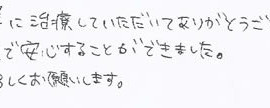 に治療していただいてありがとうご
で安心することができました。
しくお願いします。